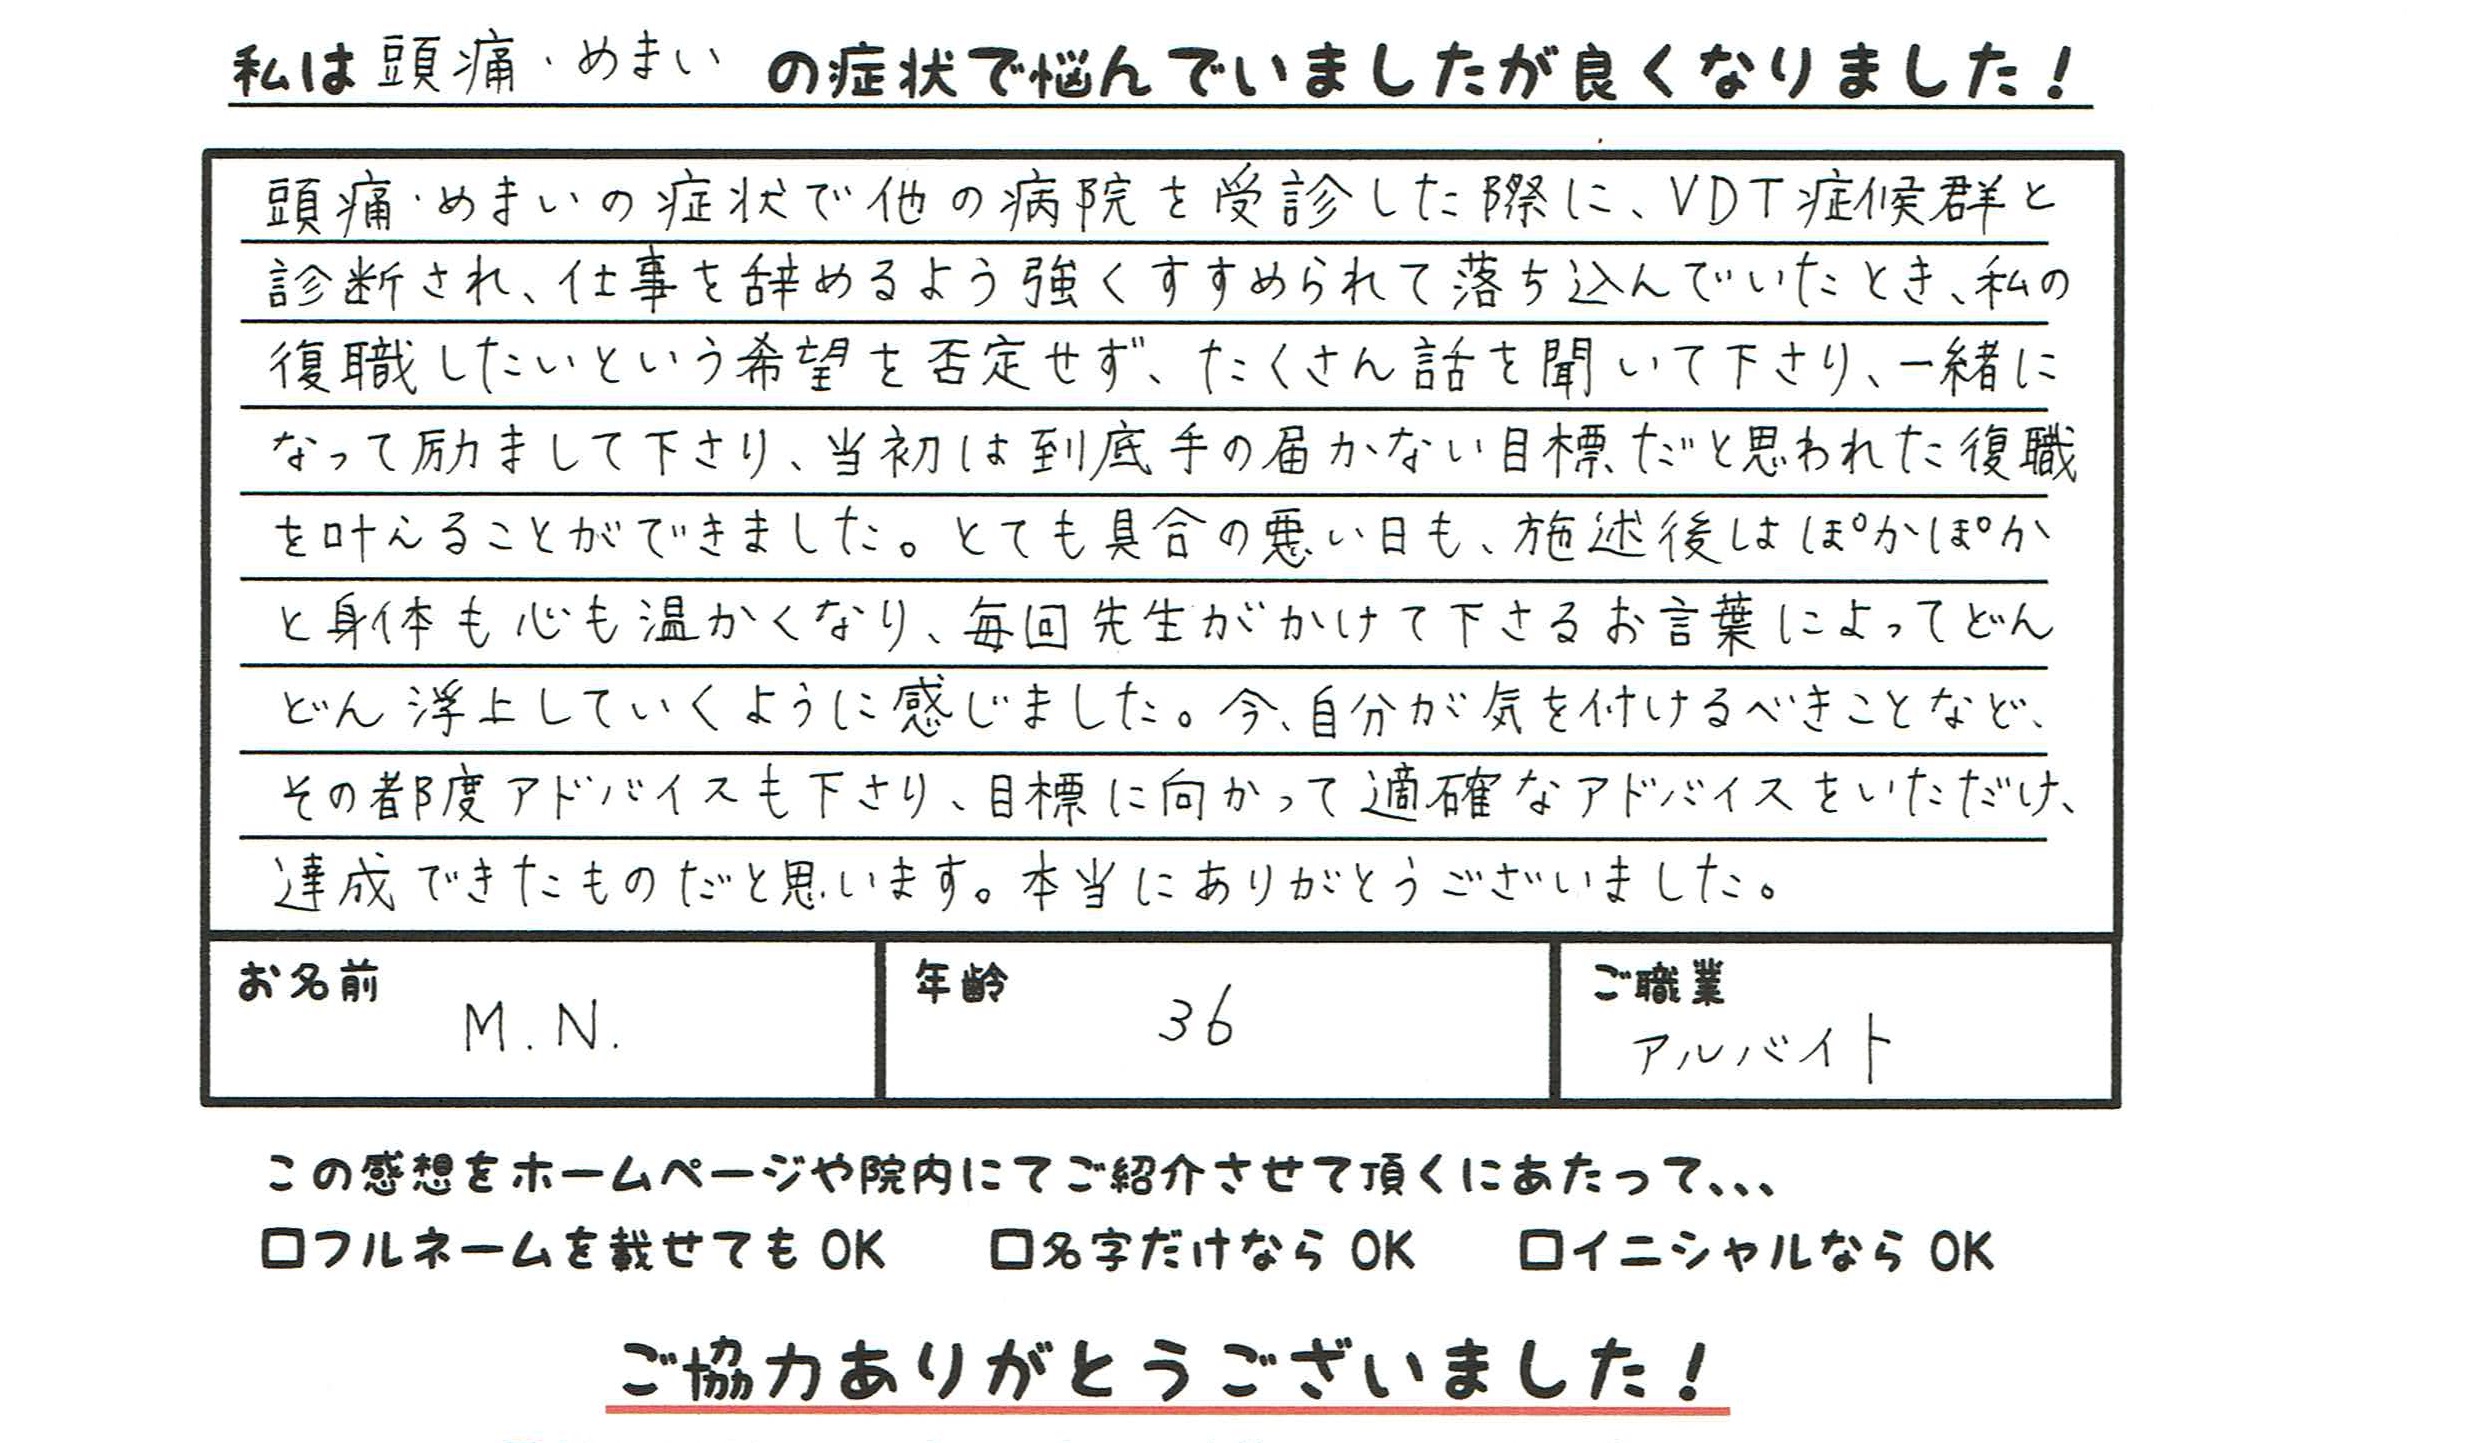 私は 頭痛・めまい の症状で悩んでいましたが良くなりました!
頭痛・めまいの症状で他の病院を受診した際に、VDT症候群と
診断され、仕事を辞めるよう強くすすめられて落ち込んでいたとき、私の
復職したいという希望を否定せず、たくさん話を聞いて下さり、一緒に
なって励まして下さり、当初は到底手の届かない目標だと思われた復職
を叶えることができました。とても具合の悪い日も、施述後はぽかぽか
と身体も心も温かくなり、毎回先生がかけて下さるお言葉によってどん
どん浮上していくように感じました。今、自分が気を付けるべきことなど、
その都度アドバイスも下さり、目標に向かって適確なアドバイスをいただけ、
達成できたものだと思います。本当にありがとうございました。
お名前 M.N. 年齢 36 ご職業 アルバイト
この感想をホームページや院内にてご紹介させて頂くにあたって、、、
□フルネームを載せてもOK □名字だけならOK □イニシャルならOK
ご協力ありがとうございました!